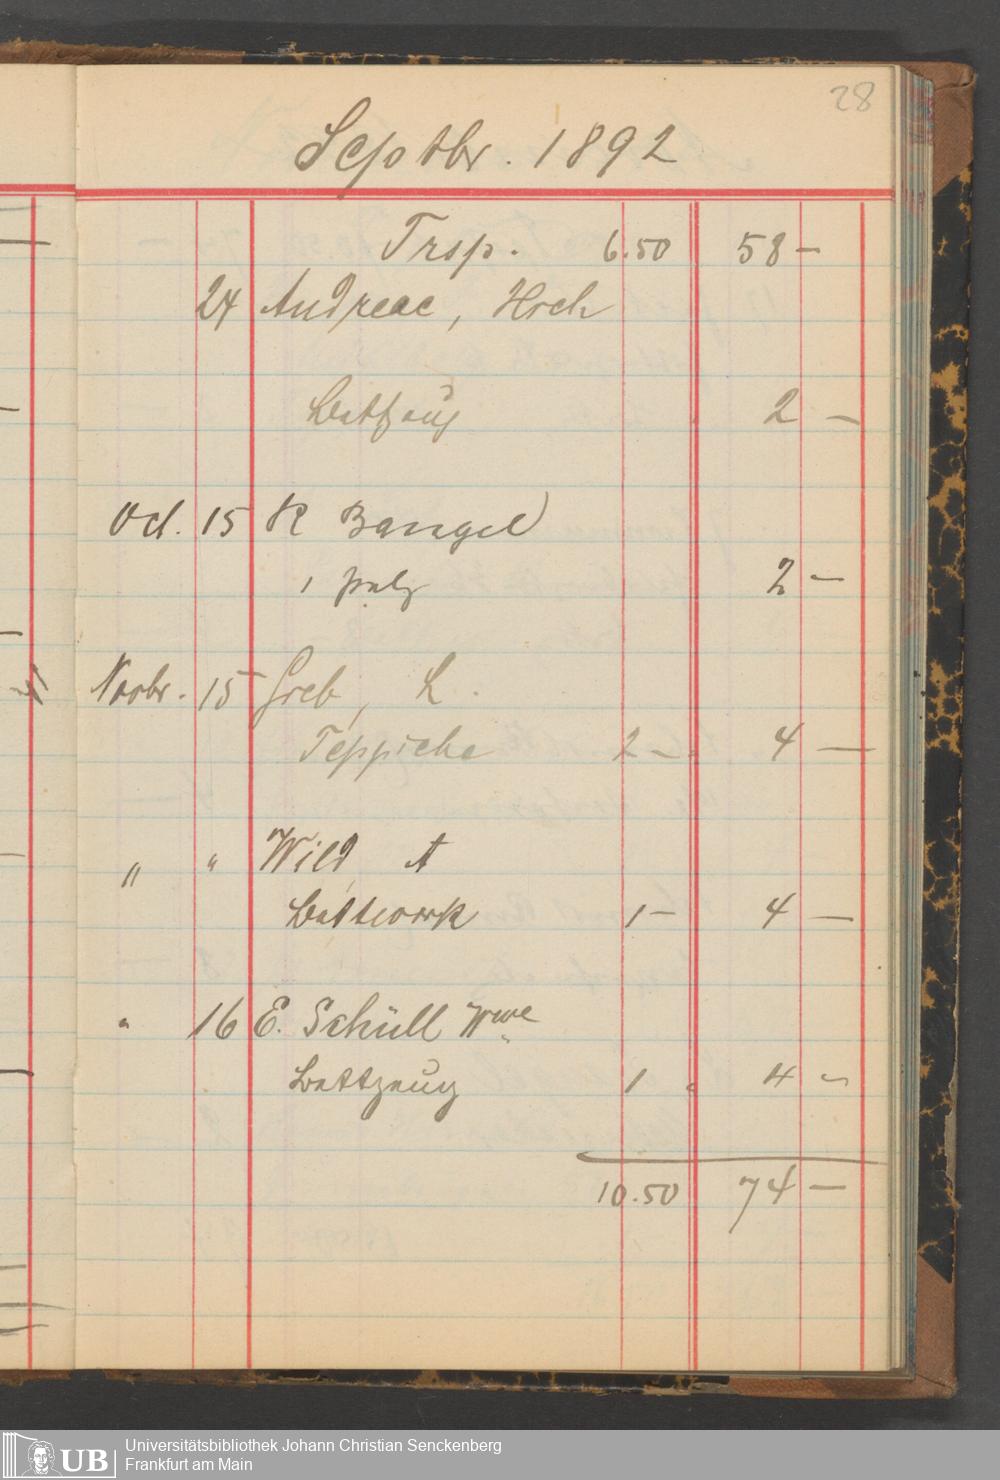 28
Septbr. 1892
Trsp. 6.50 58 —
24 Andreae, Hrch
Bettzeug 2 —
Oct. 15 R Bangel
1 Pelz 2 —
Novbr. 15 Greb, L.
Teppiche 2 — 4 —
" " Wild, A
Bettwerk 1 — 4 —
" 16 E. Schüll Wwe
Bettzeug 1 " 4 —
10.50 74 —
UB
Universitätsbibliothek Johann Christian Senckenberg
Frankfurt am Main